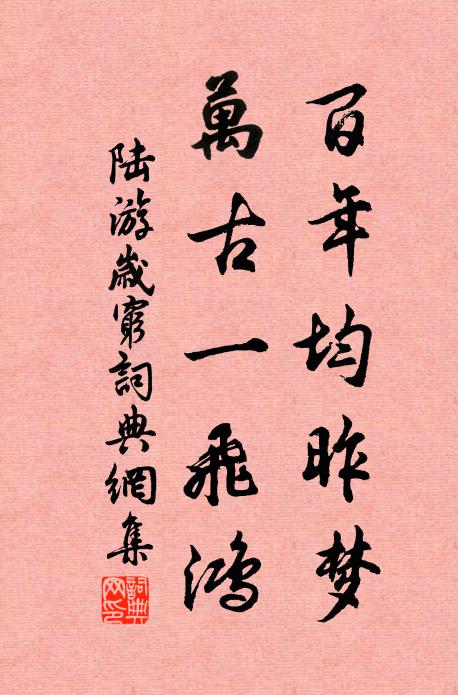 百年均昨梦
萬古一飛鴻
陆游歲窮詞典網集
詞典网印